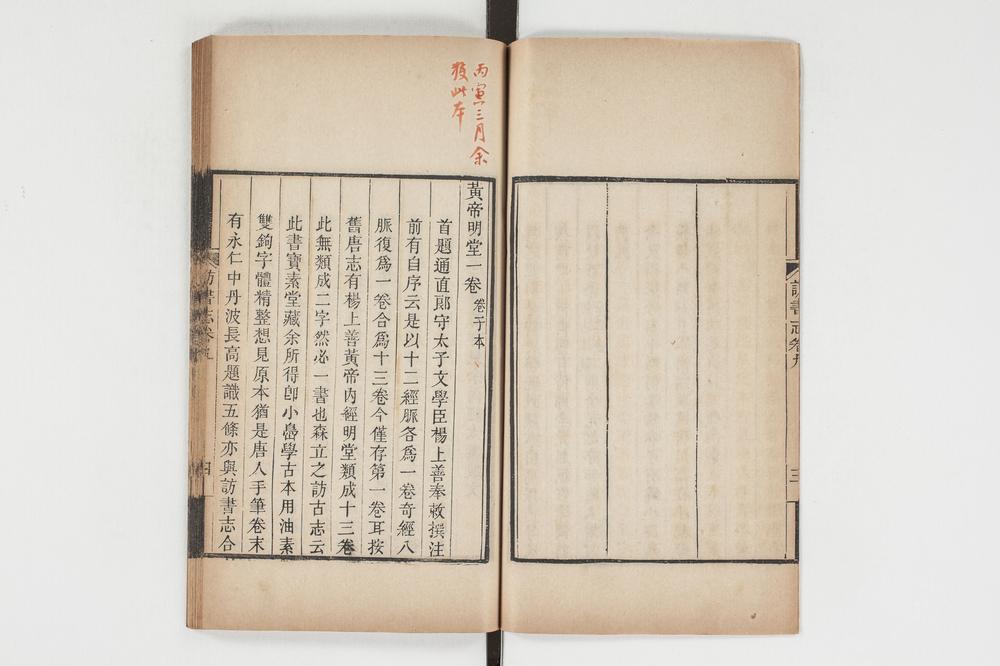 訪書志卷九
三
丙寅三月余
獲此本
黃帝明堂一卷 卷子本
首題通直郎守太子文學臣楊上善奉敕撰注
前有自序云是以十二經脈各爲一卷奇經八
脈復爲一卷合爲十三卷今僅存第一卷耳按
舊唐志有楊上善黃帝內經明堂類成十三卷
此無類成二字然必一書也森立之訪古志云
此書寶素堂藏余所得卽小島學古本用油素
雙鉤字體精整想見原本猶是唐人手筆卷末
有永仁中丹波長高題識五條亦與訪書志合
訪書志卷
四